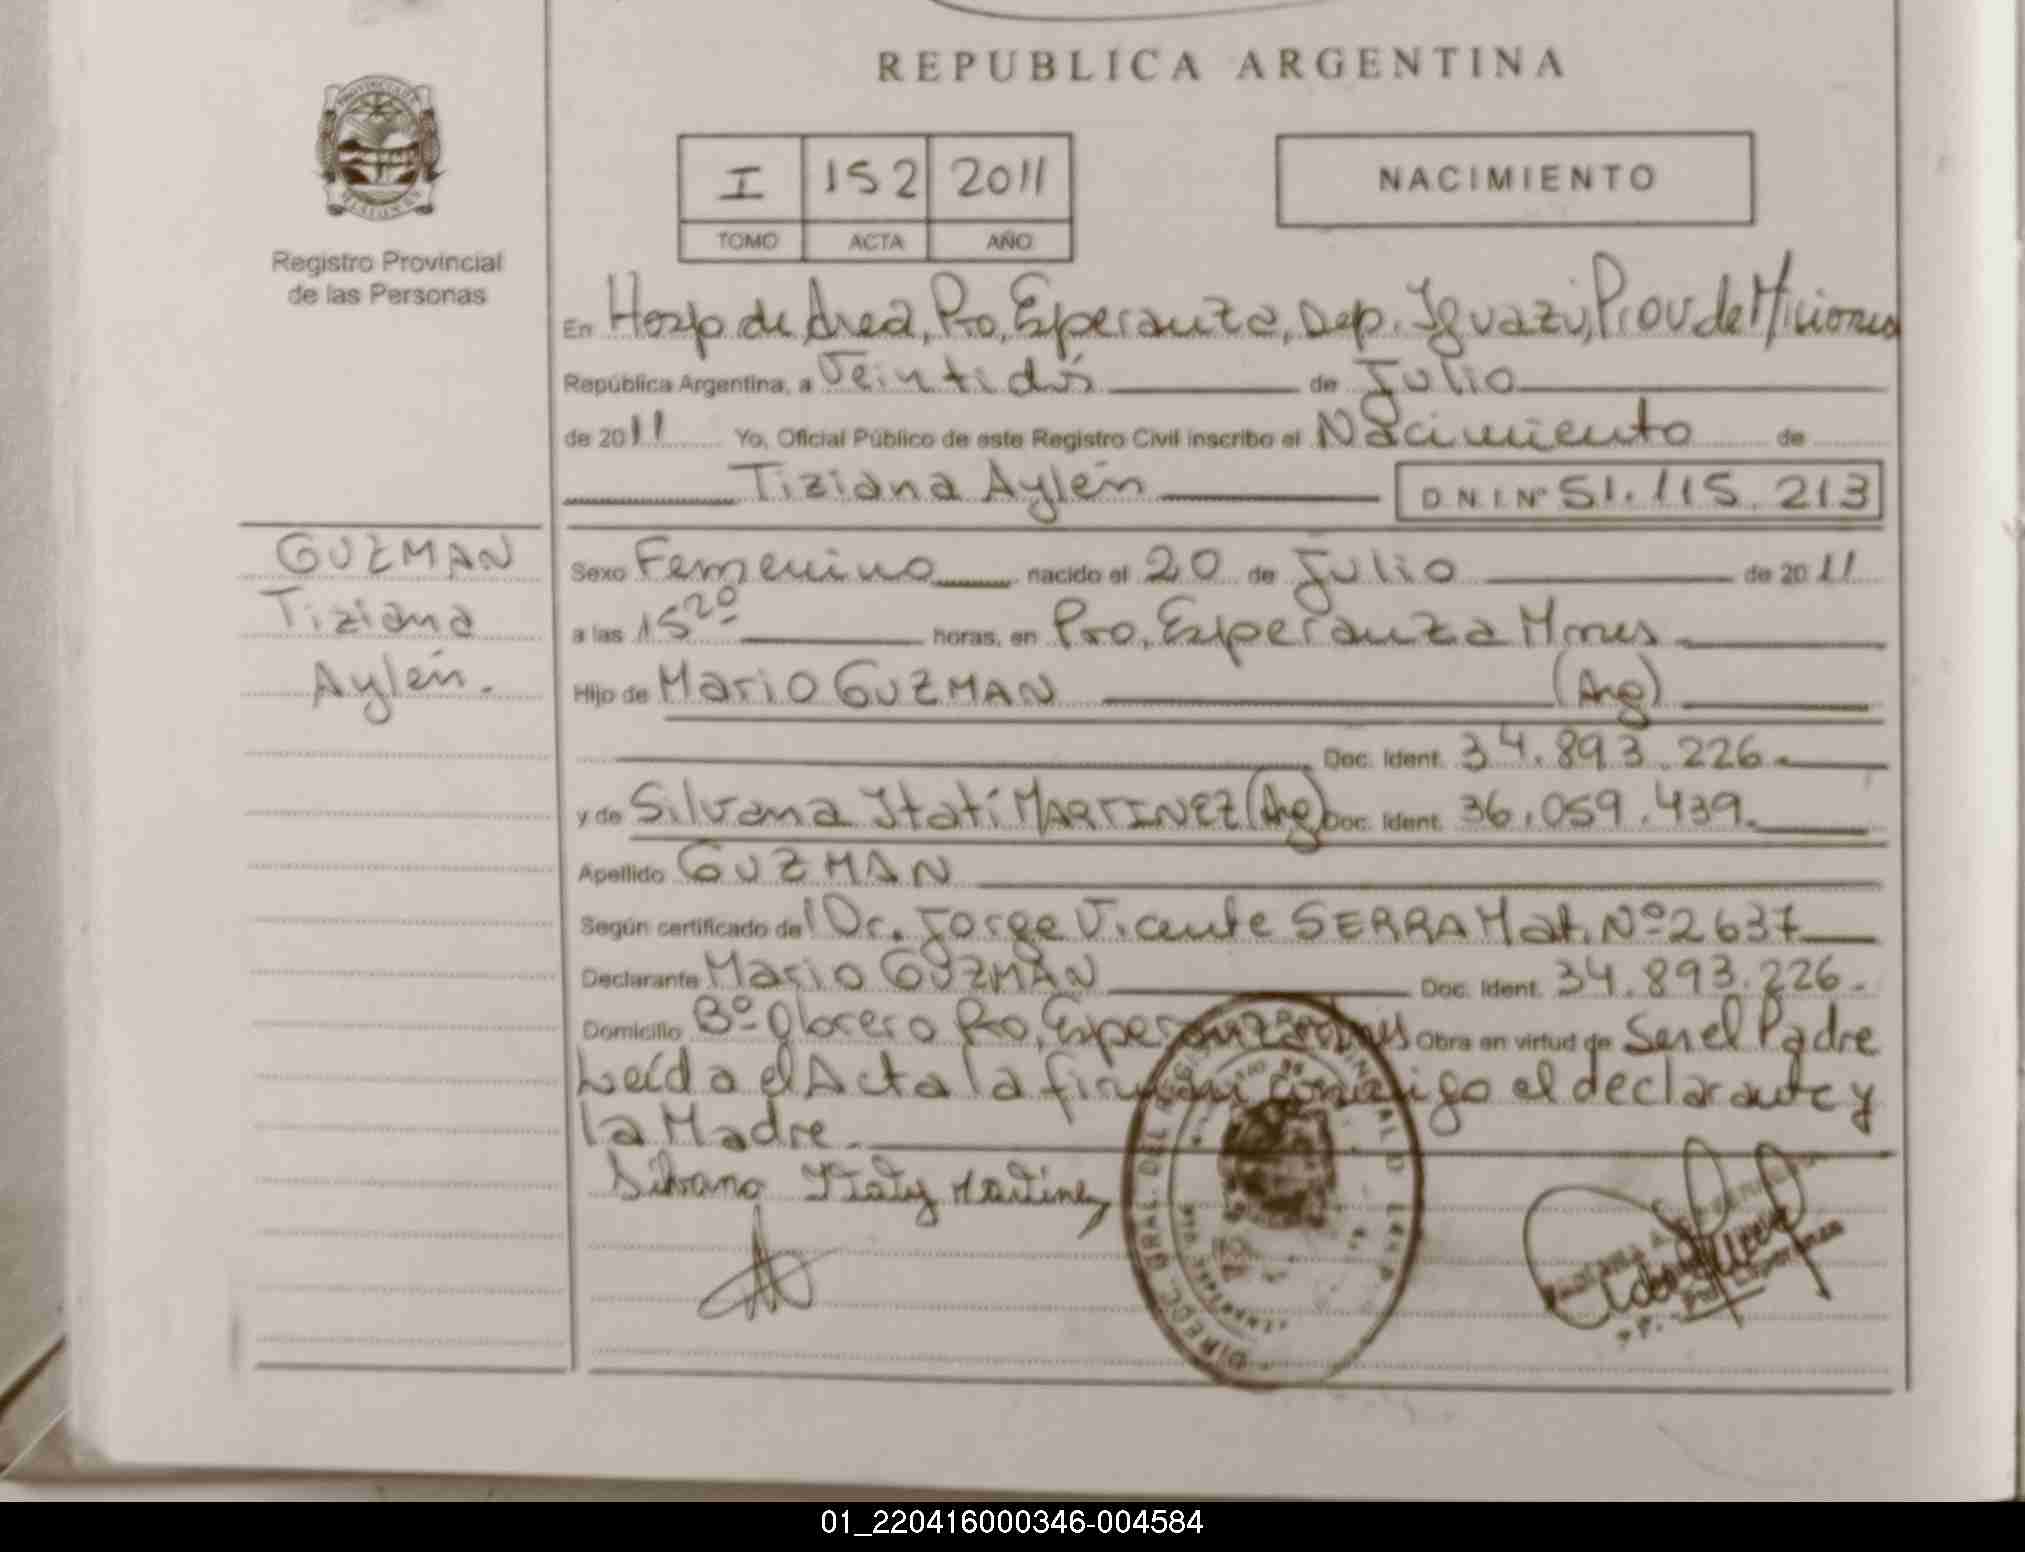 REPUBLICA ARGENTINA
I 152 2011
TOMO ACTA AÑO
NACIMIENTO
Registro Provincial
de las Personas
En Hosp de Area, Pto, Esperanza, Dep. Iguazú, Prov de Misiones
República Argentina, a Veintidós de Julio
de 2011 Yo, Oficial Público de este Registro Civil inscribo el Nacimiento de
Tiziana Aylén D.N.I. Nº 51.115.213
GUZMAN
Tiziana
Aylén.
Sexo Femenino nacido el 20 de Julio de 2011
a las 15²⁰ horas, en Pto, Esperanza Mnes
Hijo de Mario GUZMAN (Arg)
Doc. Ident. 34.893.226
y de Silvana Itatí MARTINEZ (Arg) Doc. Ident. 36.059.439.
Apellido GUZMAN
Según certificado del Dr. Jorge Vicente SERRA Mat. Nº 2637
Declarante Mario GUZMAN Doc. Ident. 34.893.226.
Domicilio Bº Obrero Pto, Esperanza Obra en virtud de Ser el Padre
Leída el Acta la firman conmigo el declarante y
la Madre.
Silvana Itaty Martinez
01_220416000346-004584